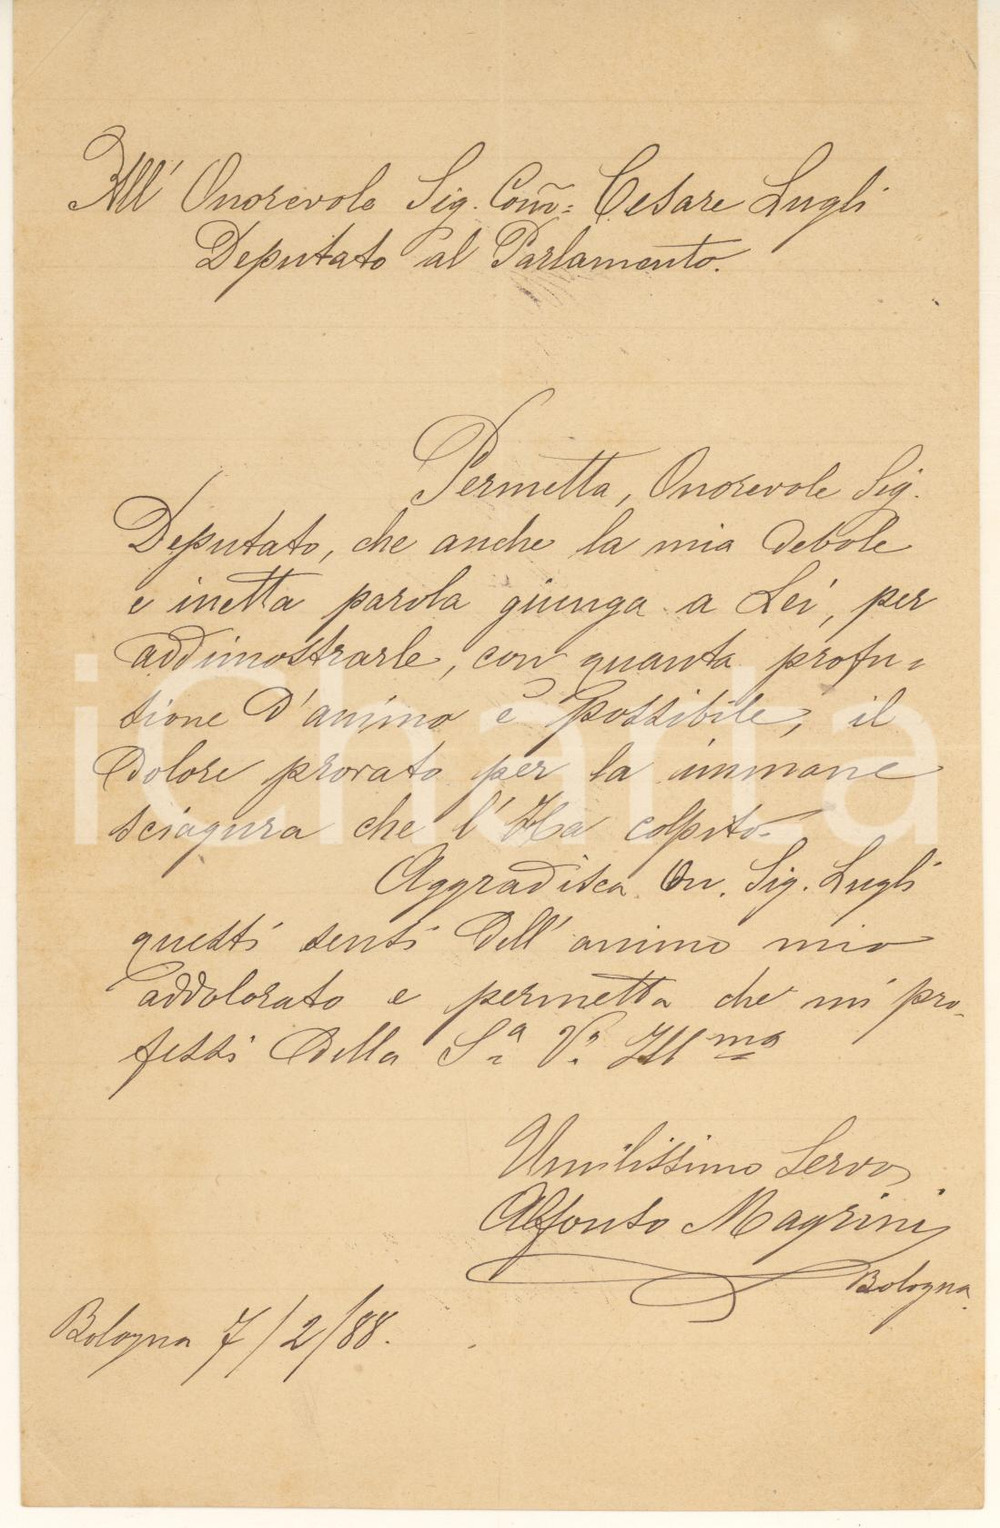 All' Onorevole Sig. Com̃: Cesare Lugli
Deputato al Parlamento.
Permetta, Onorevole Sig.
Deputato, che anche la mia debole
e inetta parola giunga a Lei, per
addimostrarle, con quanta profu=
sione d'animo è possibile, il
dolore provato per la immane
sciagura che l'Ha colpito.
Aggradisca On. Sig. Lugli
questi sensi dell'animo mio
addolorato e permetta che mi pro-
fessi della S.a V.a Ill.ma
Umilissimo Servo
Alfonso Magrini
Bologna.
Bologna 7/2/88.
iCharta